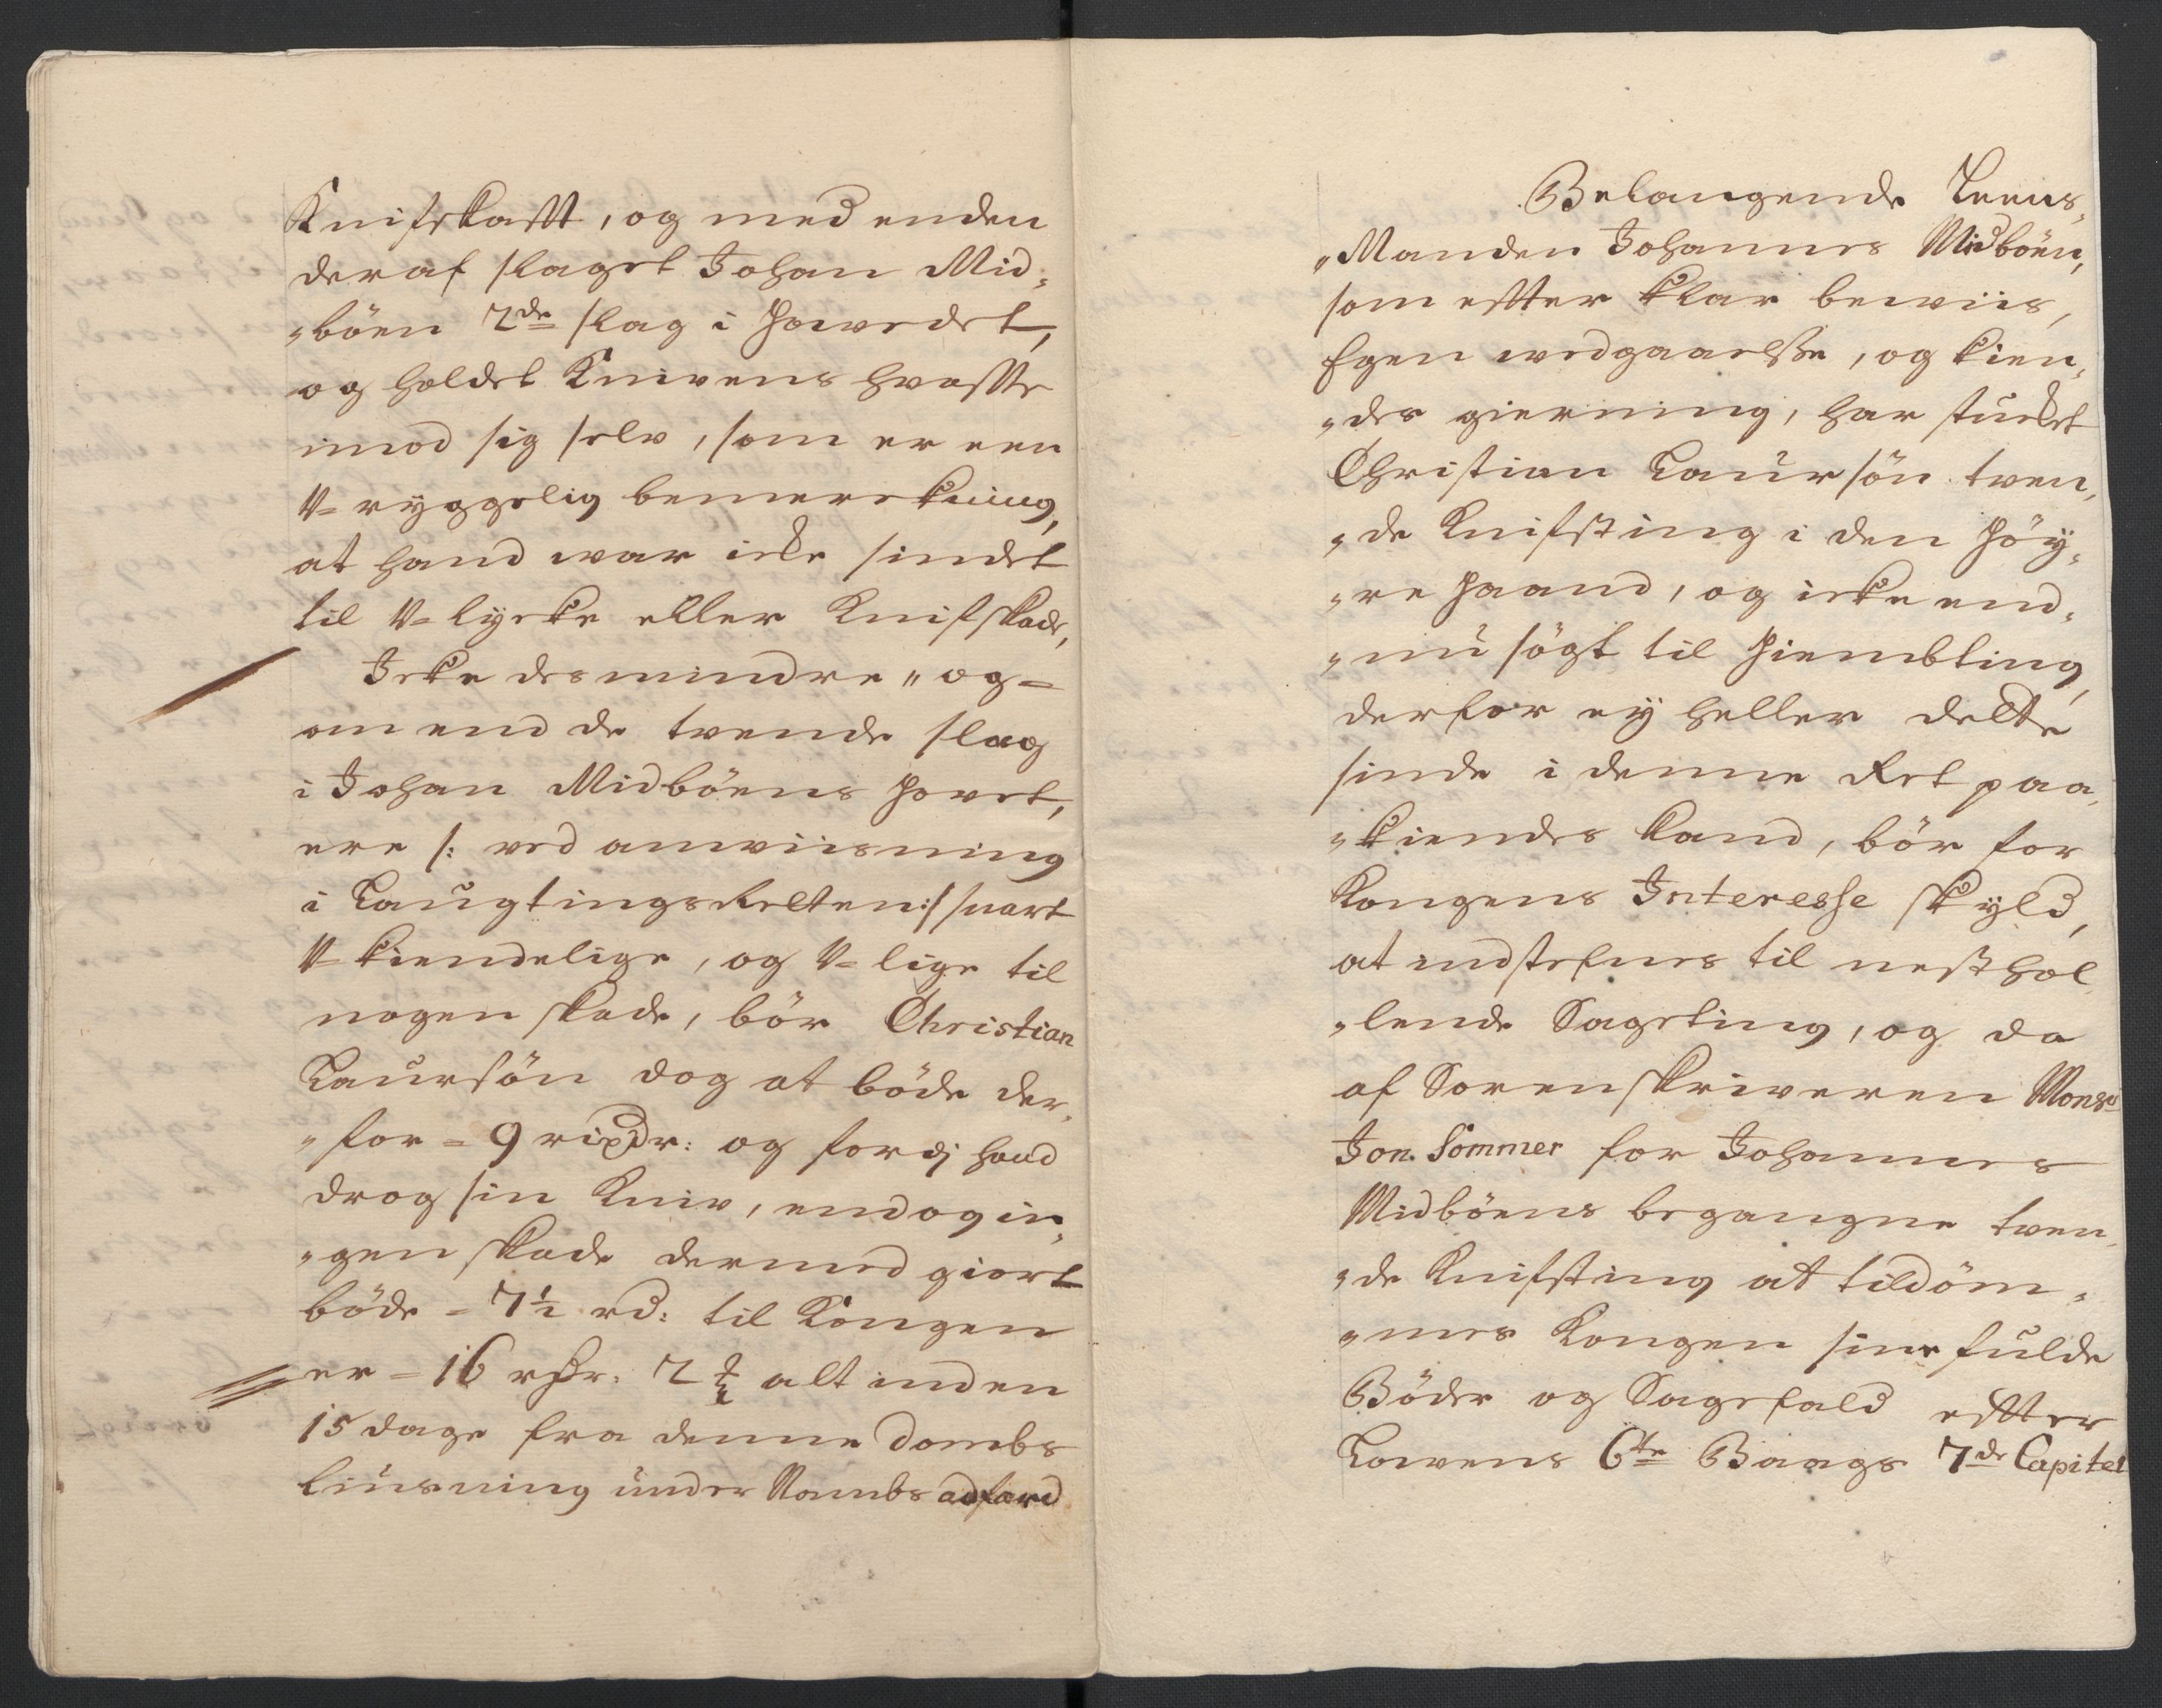 Knifskafft, og med enden
deraf slaget Johan Mid,
„böen 2de slag i Howedet,
og holdet Knivens hvasse
imod sig selv, som er een
U-ryggelig bemerckning,
at hand war icke sindet
til U-lycke eller Knifskade,
Icke desmindre „ og-
om end de tvende slag
i Johan Midböens Hovet,
ere /: ved anwiisning
i Laugtings Retten :/ snart
U-kiendelige, og U-lige til
nogen skade, bör Christian
Laursön dog at böde der,
„for = 9 rixdr: og fordj hand
drog sin Kniv, endog in,
„gen skade dermed giort
böde = 7½ rd: til Kongen
er = 16 rdr: 2 alt inden
15 dage fra denne dombs
liusning under Nambs adfærd
Belangende Lens,
„Manden Johannes Midböen,
som effter klar bewiis,
Egen wedgaaelsse, og kien,
„des gierning, har stucket
Christian Laursön tven,
„de Knifsting i den Höÿ,
„re Haand, og icke end,
„nu sögt til Hiembting,
derfor eÿ heller dette
sinde i denne Ret paa,
„kiendes kand, bör for
Kongens Interesse skÿld,
at indstefnes til nest hol
„lende Sageting, og da
af Sorenskriveren Monsr
Jon. Sommer for Johannes
Midböens begangne tven,
„de Knifsting at tildöm,
„mes Kongen sine fulde
Böder og Sagefald effter
Lowens 6te Baags 7de Capitel